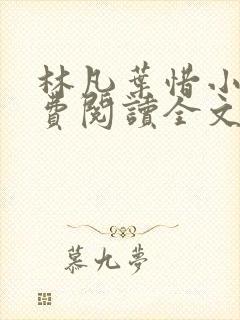 林凡葉惜小
費閱讀全文
慕九夢